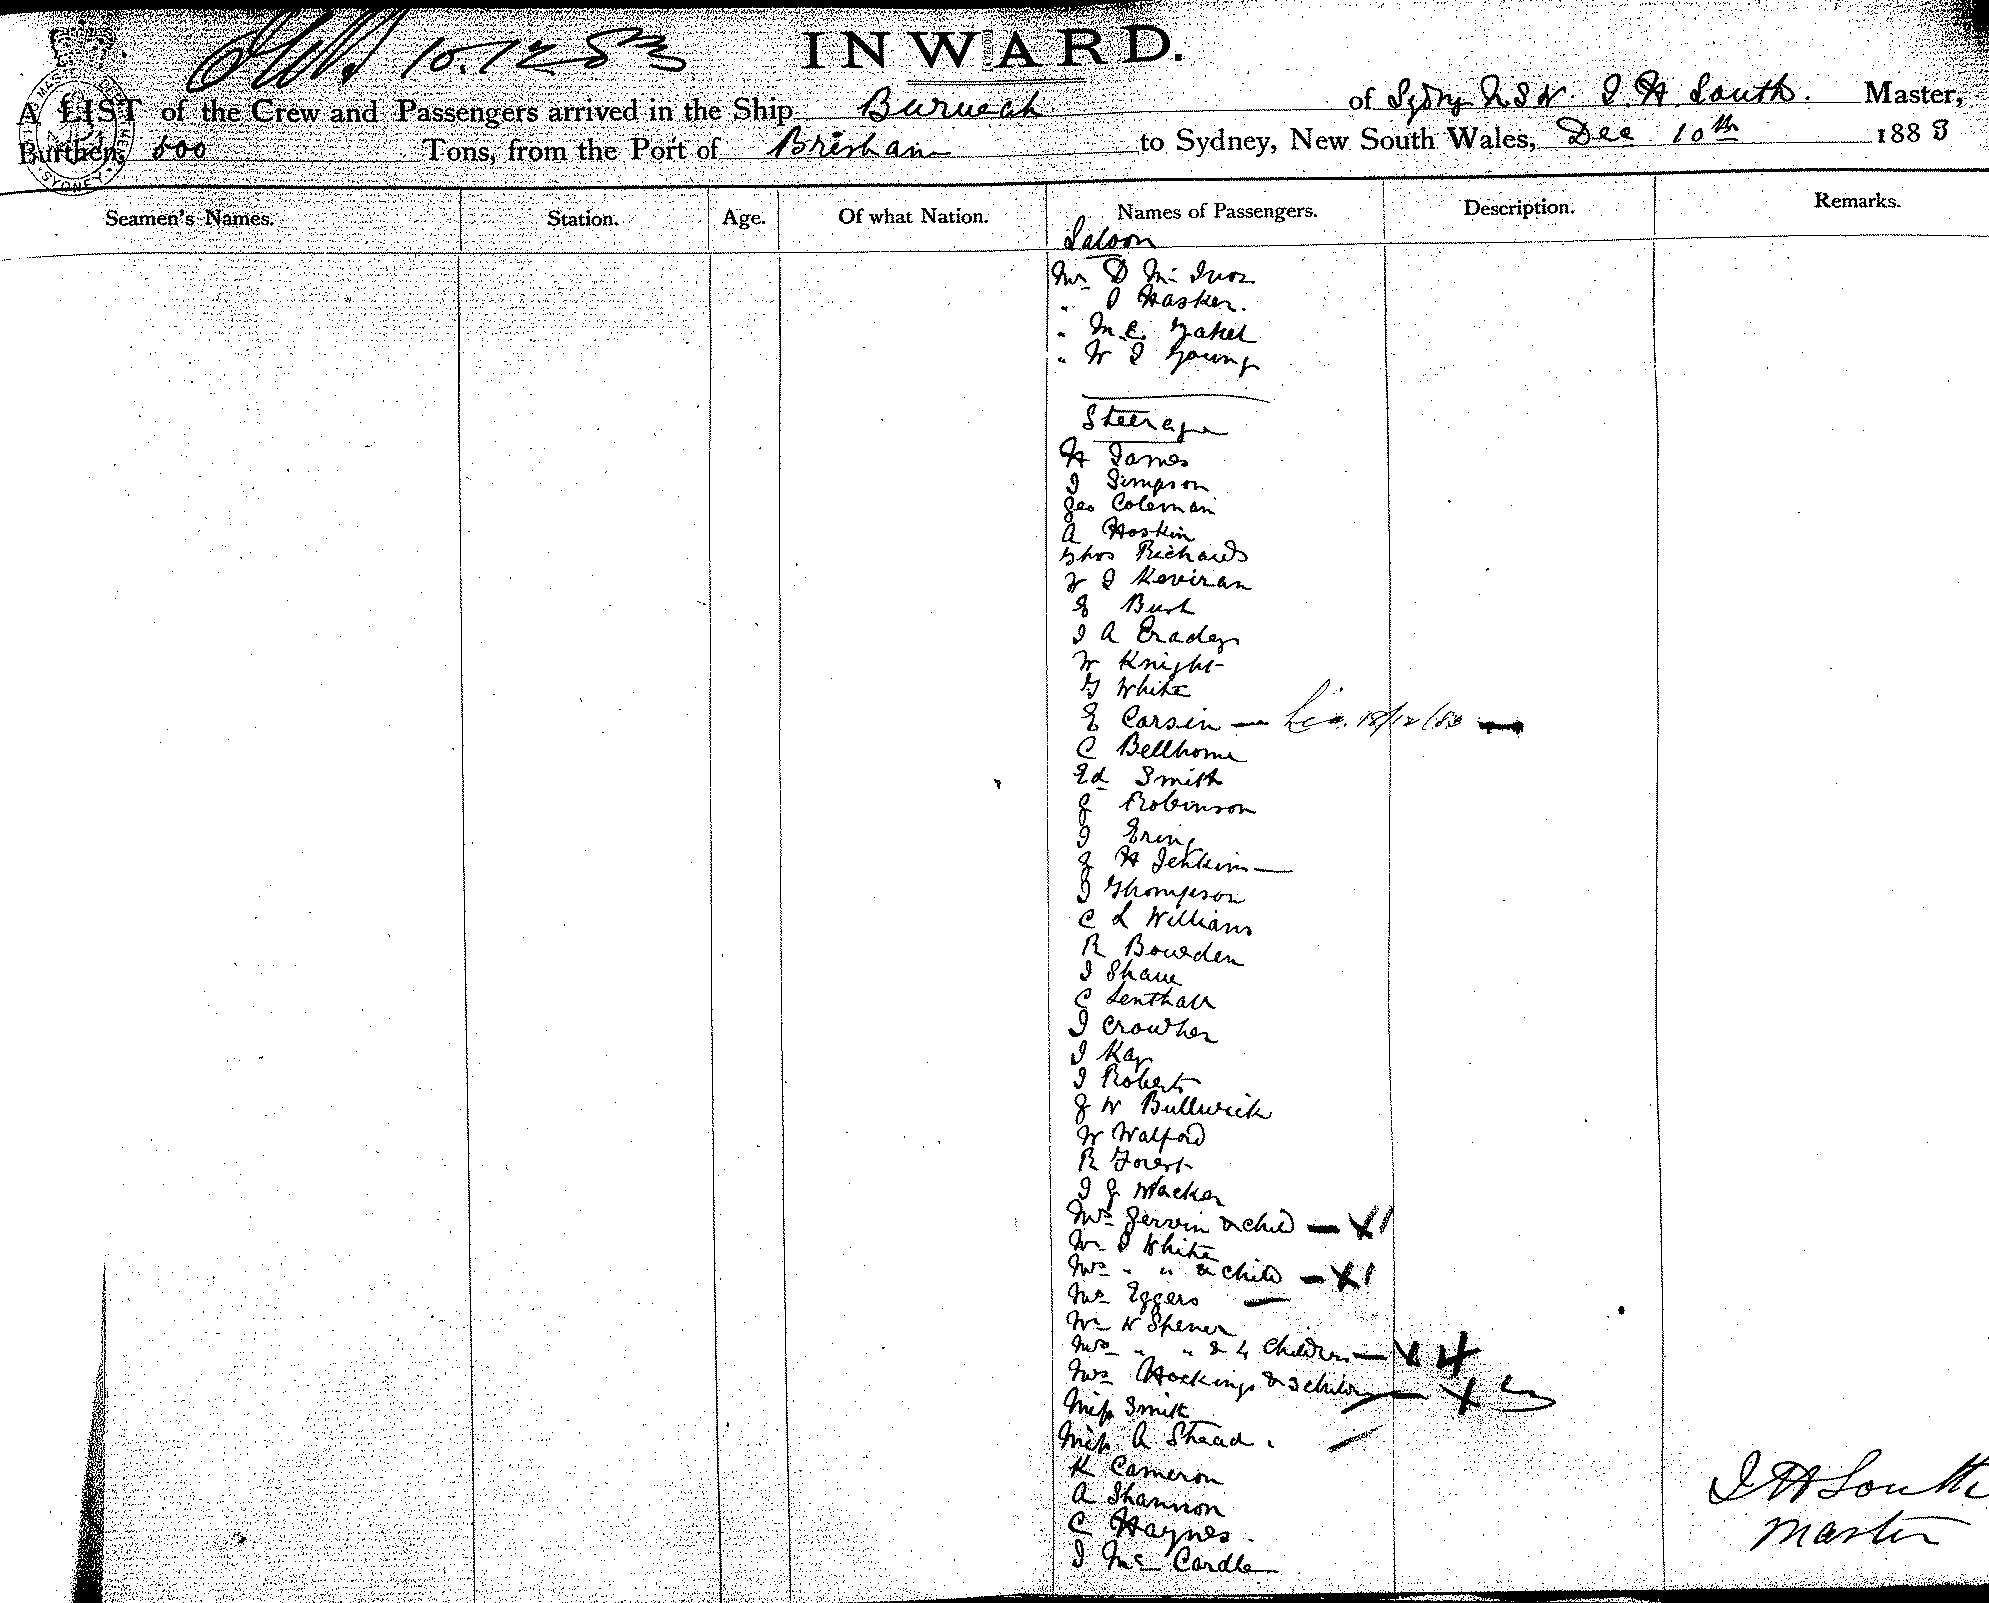 10.12.83
INWARD.
A LIST of the Crew and Passengers arrived in the Ship Burwah of Sydney N.S.W. J. H. South. Master,
Burthen, 500 Tons, from the Port of Brisbane to Sydney, New South Wales, Dec 10th 1883
Seamen's Names. Station. Age. Of what Nation. Names of Passengers. Description. Remarks.
Saloon
Mr D Mc Ivor
" J Hasker.
" M.C. Yakel
" W J Young
Steerage
H James
J Simpson
Geo Coleman
A Hoskin
Thos Richards
W J Keviran
E Bush
J A Eradey
W Knight
G White
E Carsin — 18/12/83 —
C Bellhome
Ed Smith
G Robinson
J Ering
G H Jenkins —
J Thompson
C L Williams
R Bowden
J Shaw
C Lenthall
J Crowther
J Kay
J Roberts
G W Bullwick
W Walford
R Forest
J G Wacker
Mrs Jervin & child — X 1
Mr J White
Mrs " " & child — X 1
Mr Eggers —
Mr W Spener
Mrs " " & 4 children — X 4
Mrs Hockings & 3 children — X 3
Miss Smith
Miss A Shead.
K Cameron
A Shannon
C Haynes.
J Mc Cardle
J H South
Master